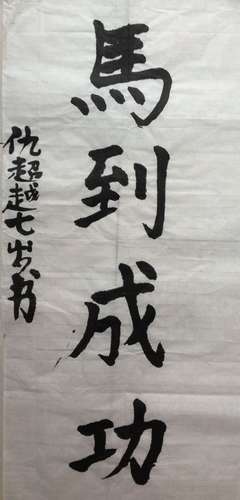 馬到成功
仇超越七岁书